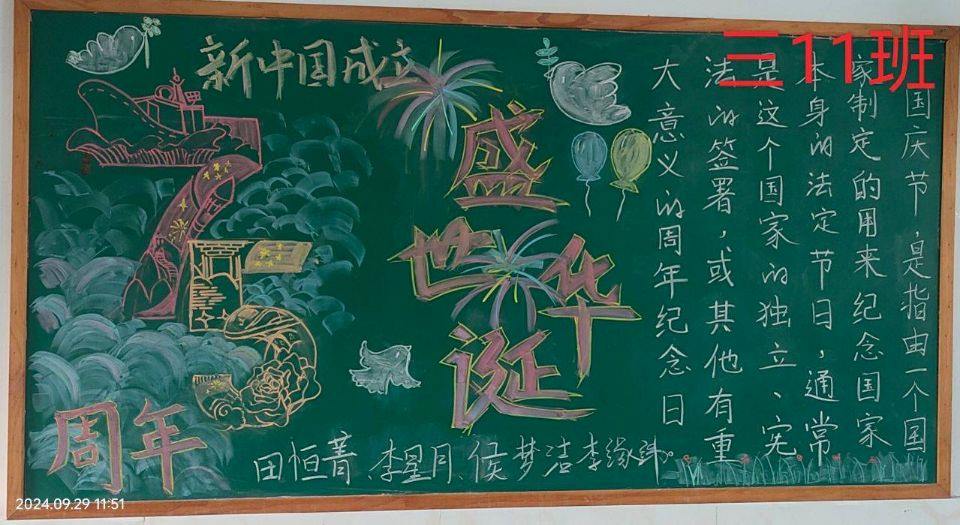 三11班
新中国成立
75
周年
盛世华诞
国庆节,是指由一个国
家制定的用来纪念国家
本身的法定节日,通常
是这个国家的独立、宪
法的签署,或其他有重
大意义的周年纪念日
田恒菁、李星月、侯梦洁李
2024.09.29 11:51